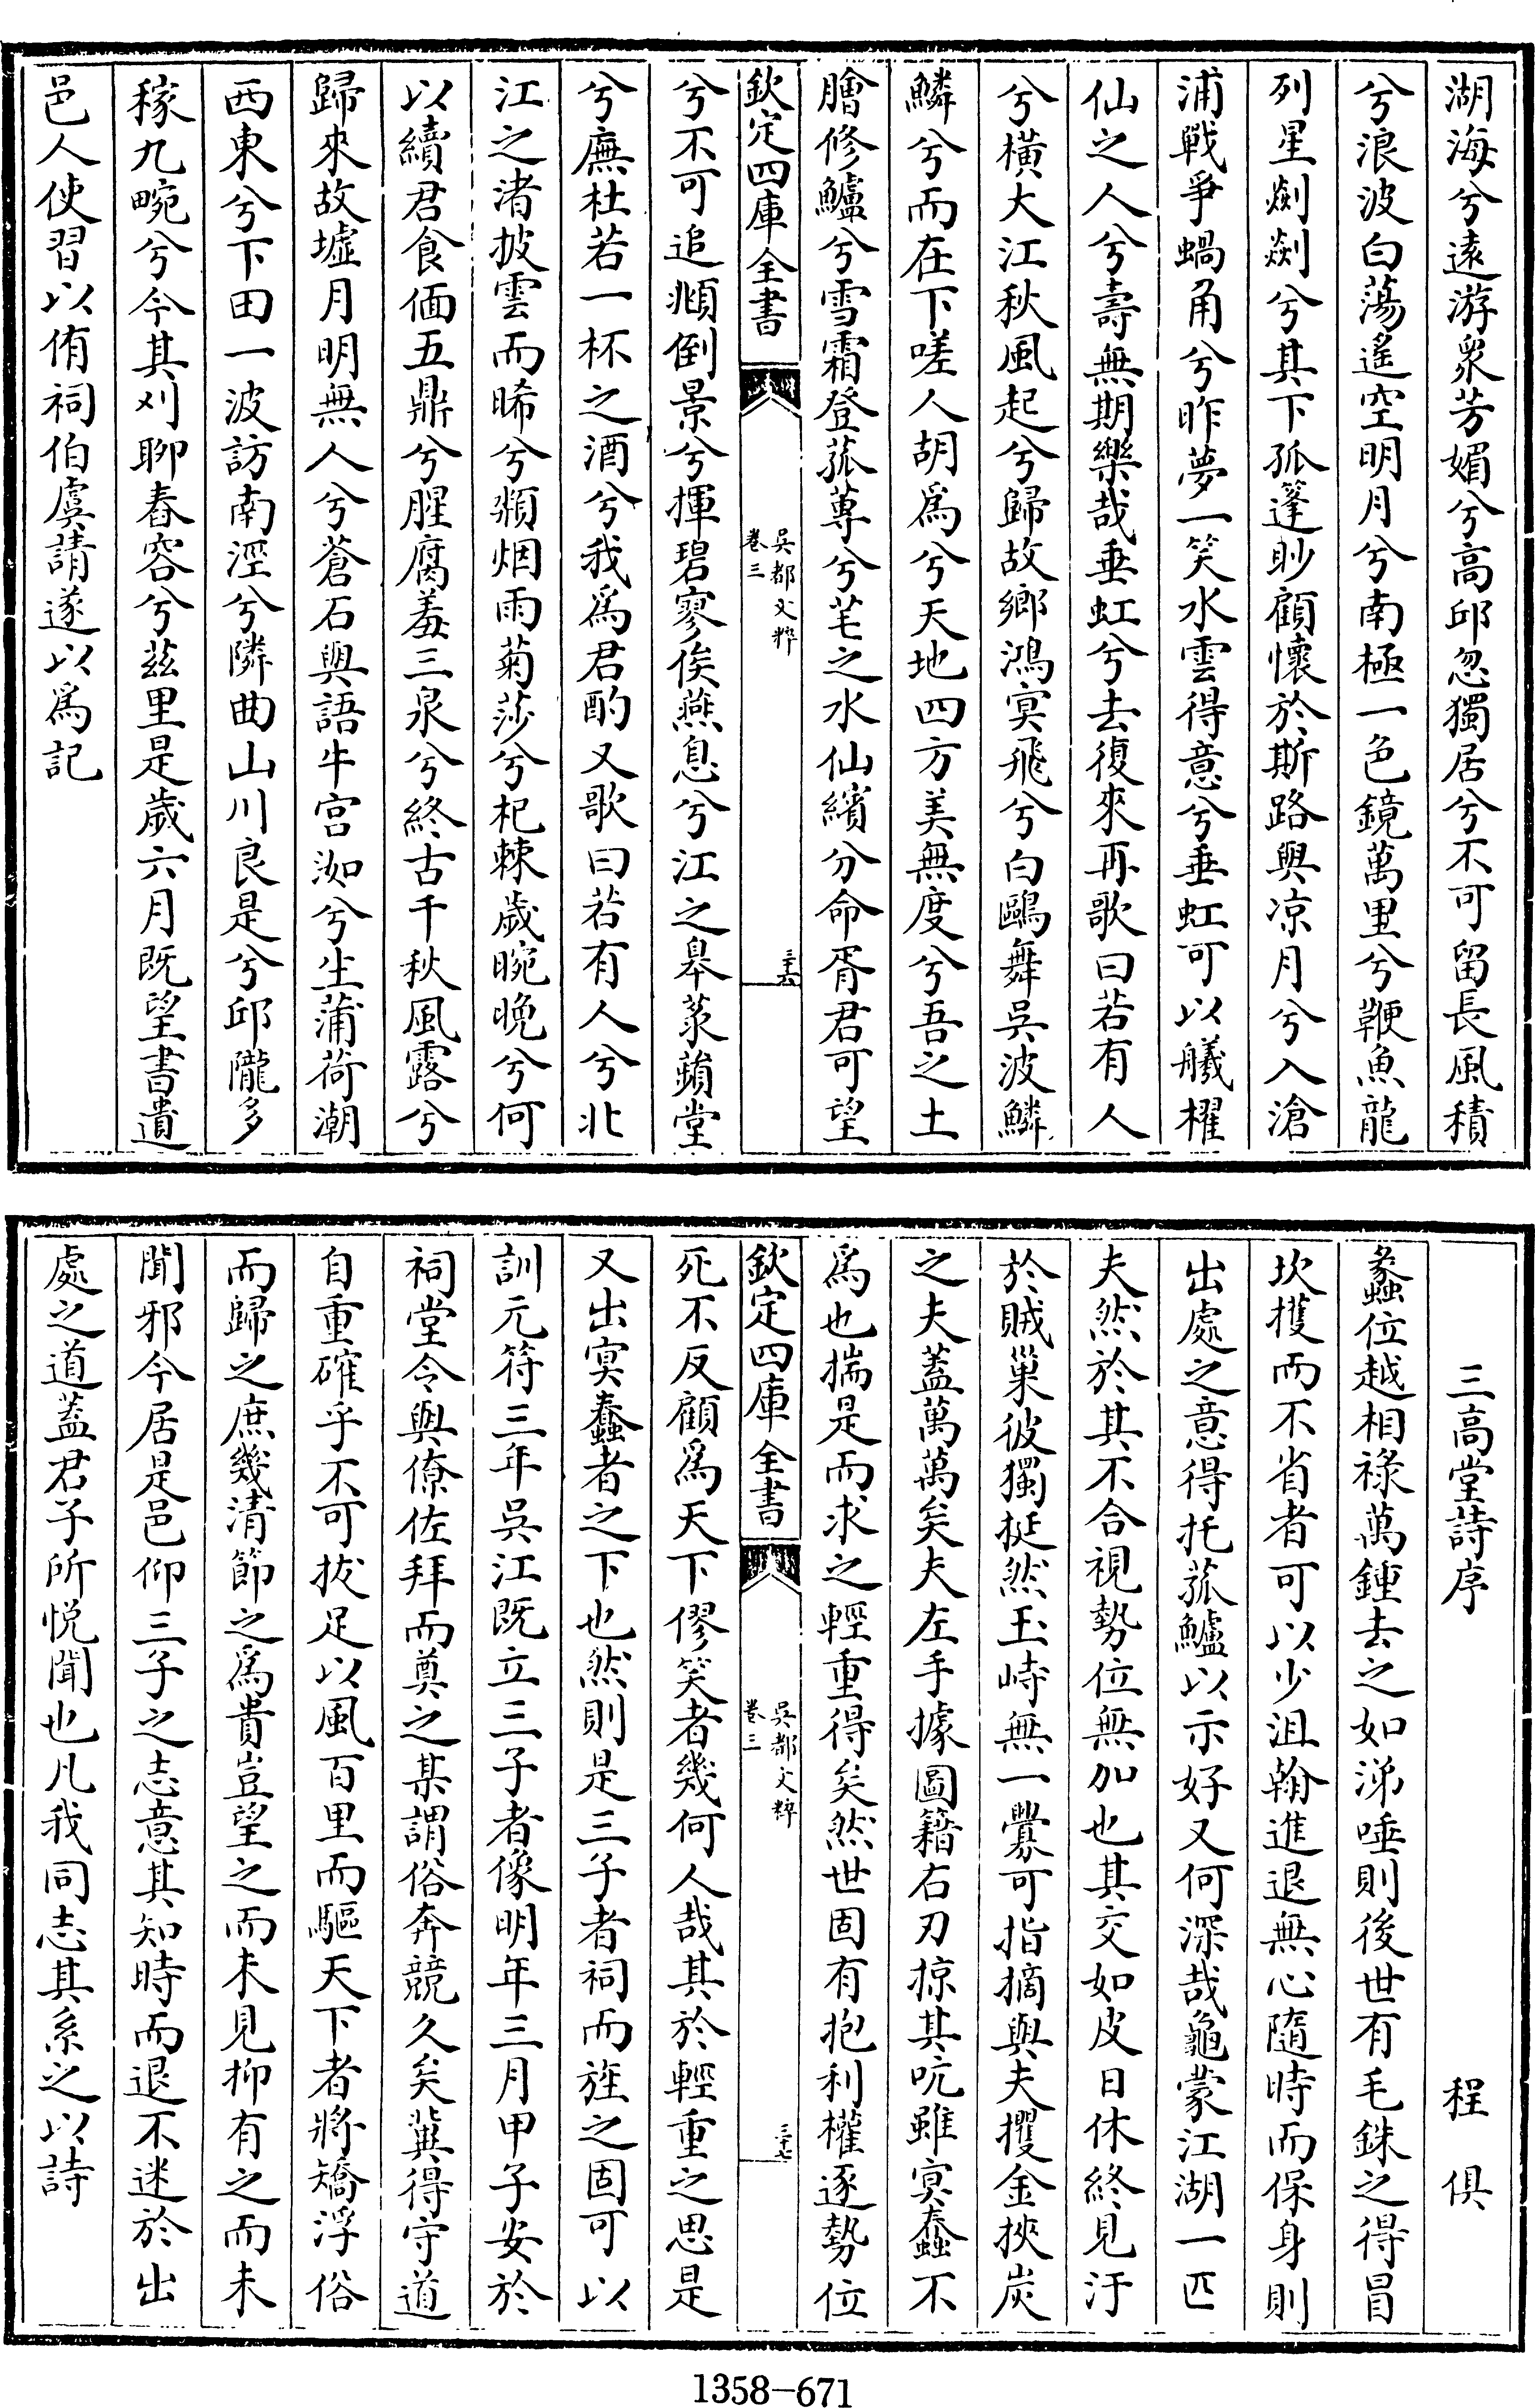 湖海兮遠游衆芳媚兮高邱忽獨居兮不可留長風積
兮浪波白蕩遙空明月兮南極一色鏡萬里兮鞭魚龍
列星劌劌兮其下孤篷眇顧懷於斯路與凉月兮入滄
浦戰爭蝸角兮昨夢一笑水雲得意兮垂虹可以艤櫂
仙之人兮壽無期樂哉垂虹兮去復來再歌曰若有人
兮橫大江秋風起兮歸故鄉鴻冥飛兮白鷗舞吳波鱗
鱗兮而在下嗟人胡爲兮天地四方美無度兮吾之土
膾修鱸兮雪霜登菰蓴兮芼之水仙繽分命胥君可望
欽定四庫全書
吳都文粹
卷三
三十六
兮不可追頫倒景兮揮碧寥俟燕息兮江之皋菉蘋堂
兮廡杜若一杯之酒兮我爲君酌又歌曰若有人兮北
江之渚披雲而晞兮頮烟雨菊莎兮杞棘歲晼晚兮何
以續君食偭五鼎兮腥腐羞三泉兮終古千秋風露兮
歸來故墟月明無人兮蒼石與語牛宮洳兮生蒲荷潮
西東兮下田一波訪南涇兮隣曲山川良是兮邱隴多
稼九畹兮今其刈聊舂容兮茲里是歲六月既望書遺
邑人使習以侑祠伯虞請遂以爲記
三高堂詩序
程俱
蠡位越相祿萬鍾去之如涕唾則後世有毛銖之得冒
坎擭而不省者可以少沮翰進退無心隨時而保身則
出處之意得托菰鱸以示好又何深哉龜蒙江湖一匹
夫然於其不合視勢位無加也其交如皮日休終見汙
於賊巢彼獨挺然玉峙無一釁可指摘與夫攫金挾炭
之夫蓋萬萬矣夫左手據圖籍右刃掠其吭雖冥蠢不
爲也揣是而求之輕重得矣然世固有抱利權逐勢位
欽定四庫全書
吳都文粹
卷三
三十七
死不反顧爲天下僇笑者幾何人哉其於輕重之思是
又出冥蠢者之下也然則是三子者祠而旌之固可以
訓元符三年吳江既立三子者像明年三月甲子安於
祠堂令與僚佐拜而奠之某謂俗奔競久矣冀得守道
自重確乎不可拔足以風百里而驅天下者將矯浮俗
而歸之庶幾清節之爲貴豈望之而未見抑有之而未
聞邪今居是邑仰三子之志意其知時而退不迷於出
處之道蓋君子所悅聞也凡我同志其系之以詩
1358-671